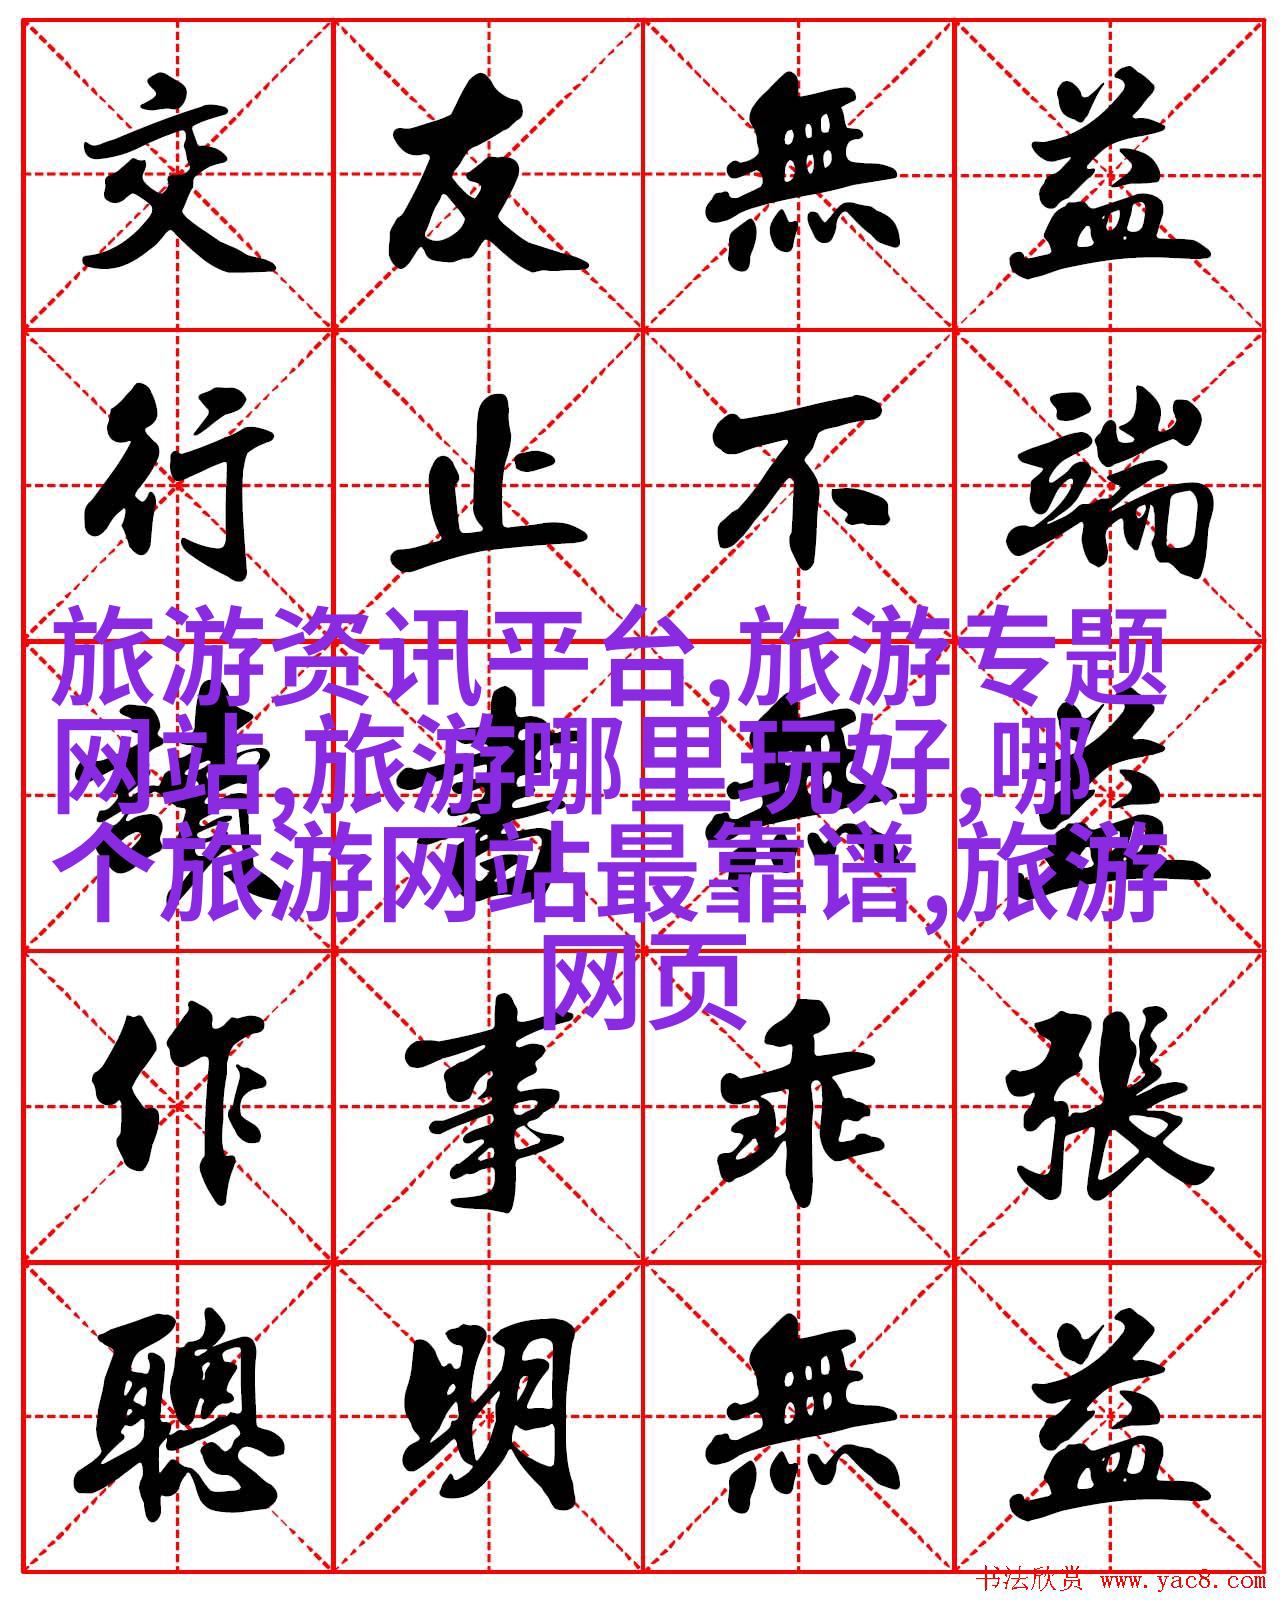 交友無益
行止不端
旅游资讯平台,旅游专题
網站,旅游哪里玩好,哪
个旅游网站最靠谱,旅游
网页
讀書無益
作事乖張
聰明無益
书法欣赏 www.yac8.com